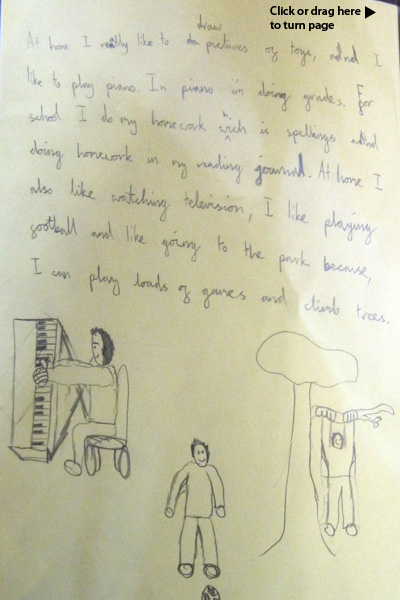 Click or drag here
to turn page
draw
At home I really like to do pictures of toys, and I
like to play piano. In piano im doing grades. For
school I do my homework which is spellings and
doing homework in my reading journal. At home I
also like watching television, I like playing
football and like going to the park because,
I can play loads of games and climb trees.